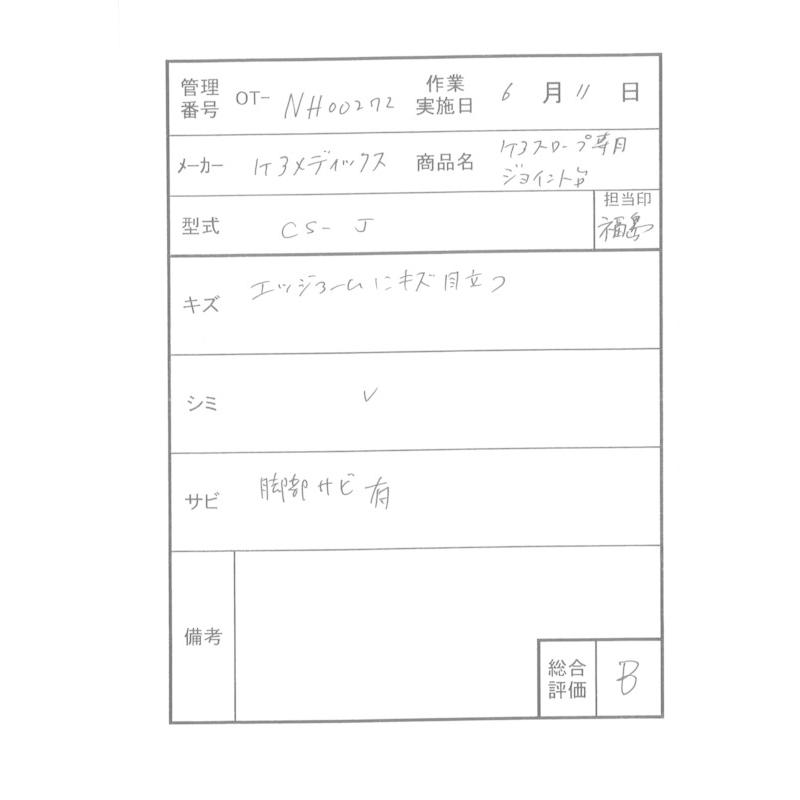 管理番号 OT- NH00272 作業実施日 6月11日
メーカー ケアメディックス 商品名 ケアスロープ専用
ジョイント台
型式 CS-J 担当印 福島
キズ エッジフレームにキズ目立つ
シミ レ
サビ 脚部サビ有
備考
総合評価 B